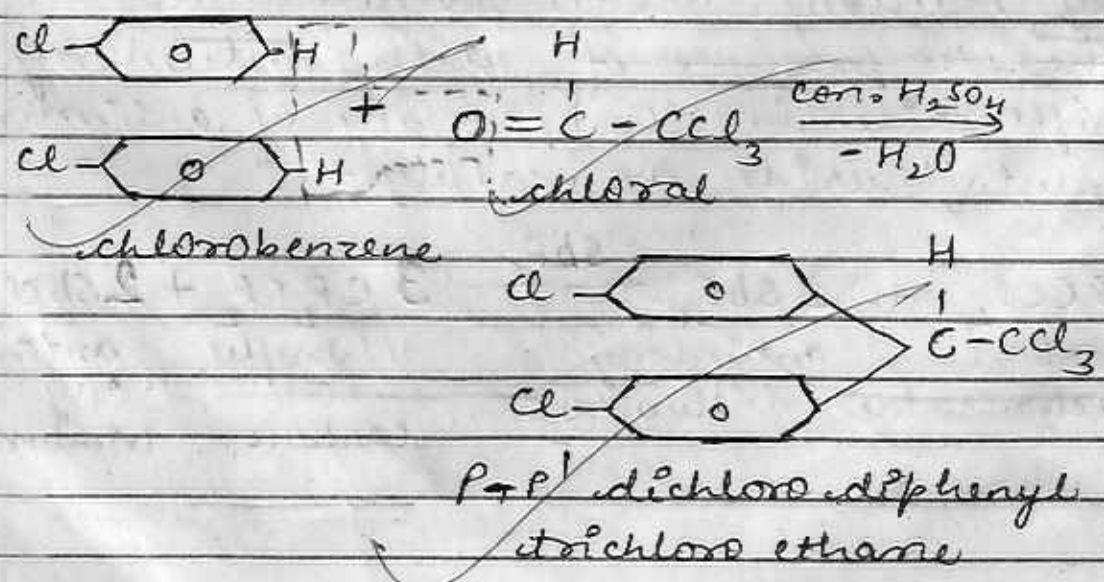 Cl H H
O
+
O = C - CCl3 con. H2SO4
- H2O
Cl O H
chloral
chlorobenzene
H
Cl O
C - CCl3
Cl O
P-P' dichloro diphenyl
trichloro ethane